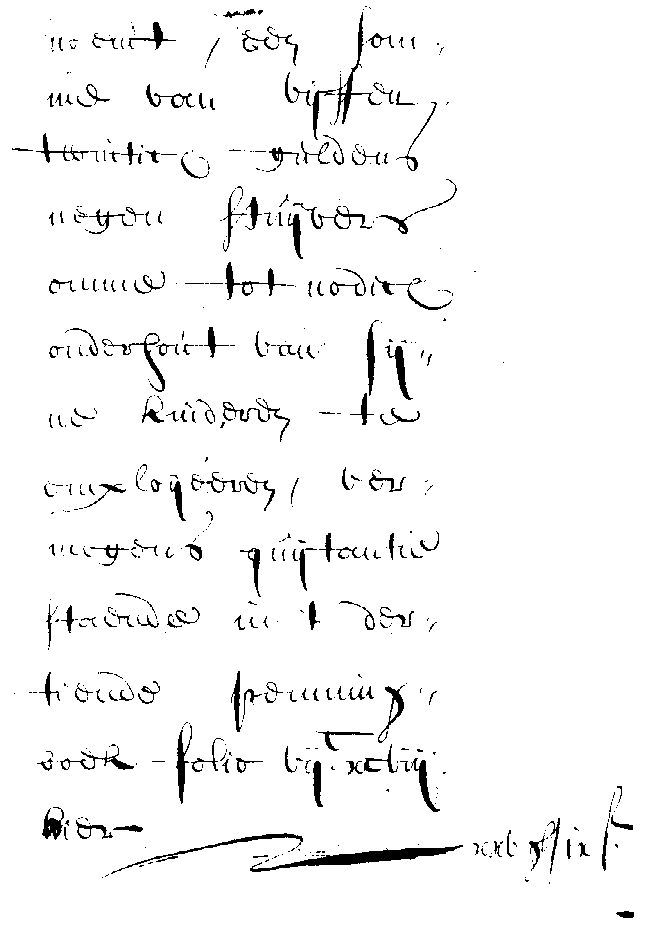 noemt, een som„
me van vijffen„
twintic guldens
negen stuijvers
omme tot nodich
onderhout van sij„
ne kinderen te
employeeren, ver„
mogens quijtantie
staende in 't der„
tiende penning„
boek folio vijᶜ xcviij
hier xxv gl ix s.